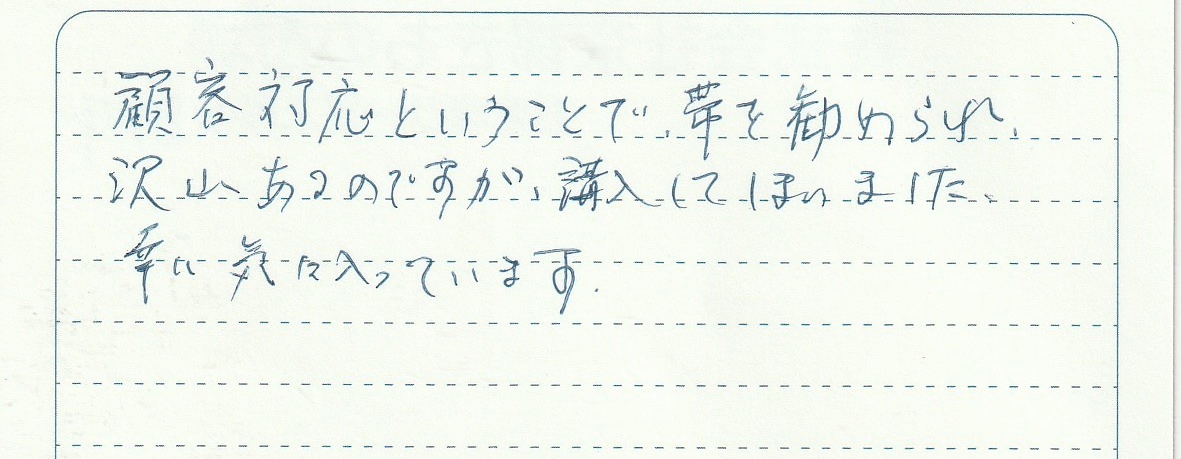 顧客対応ということで、帯を勧められ、
沢山あるのですが、購入してしまいました、
幸い気に入っています.